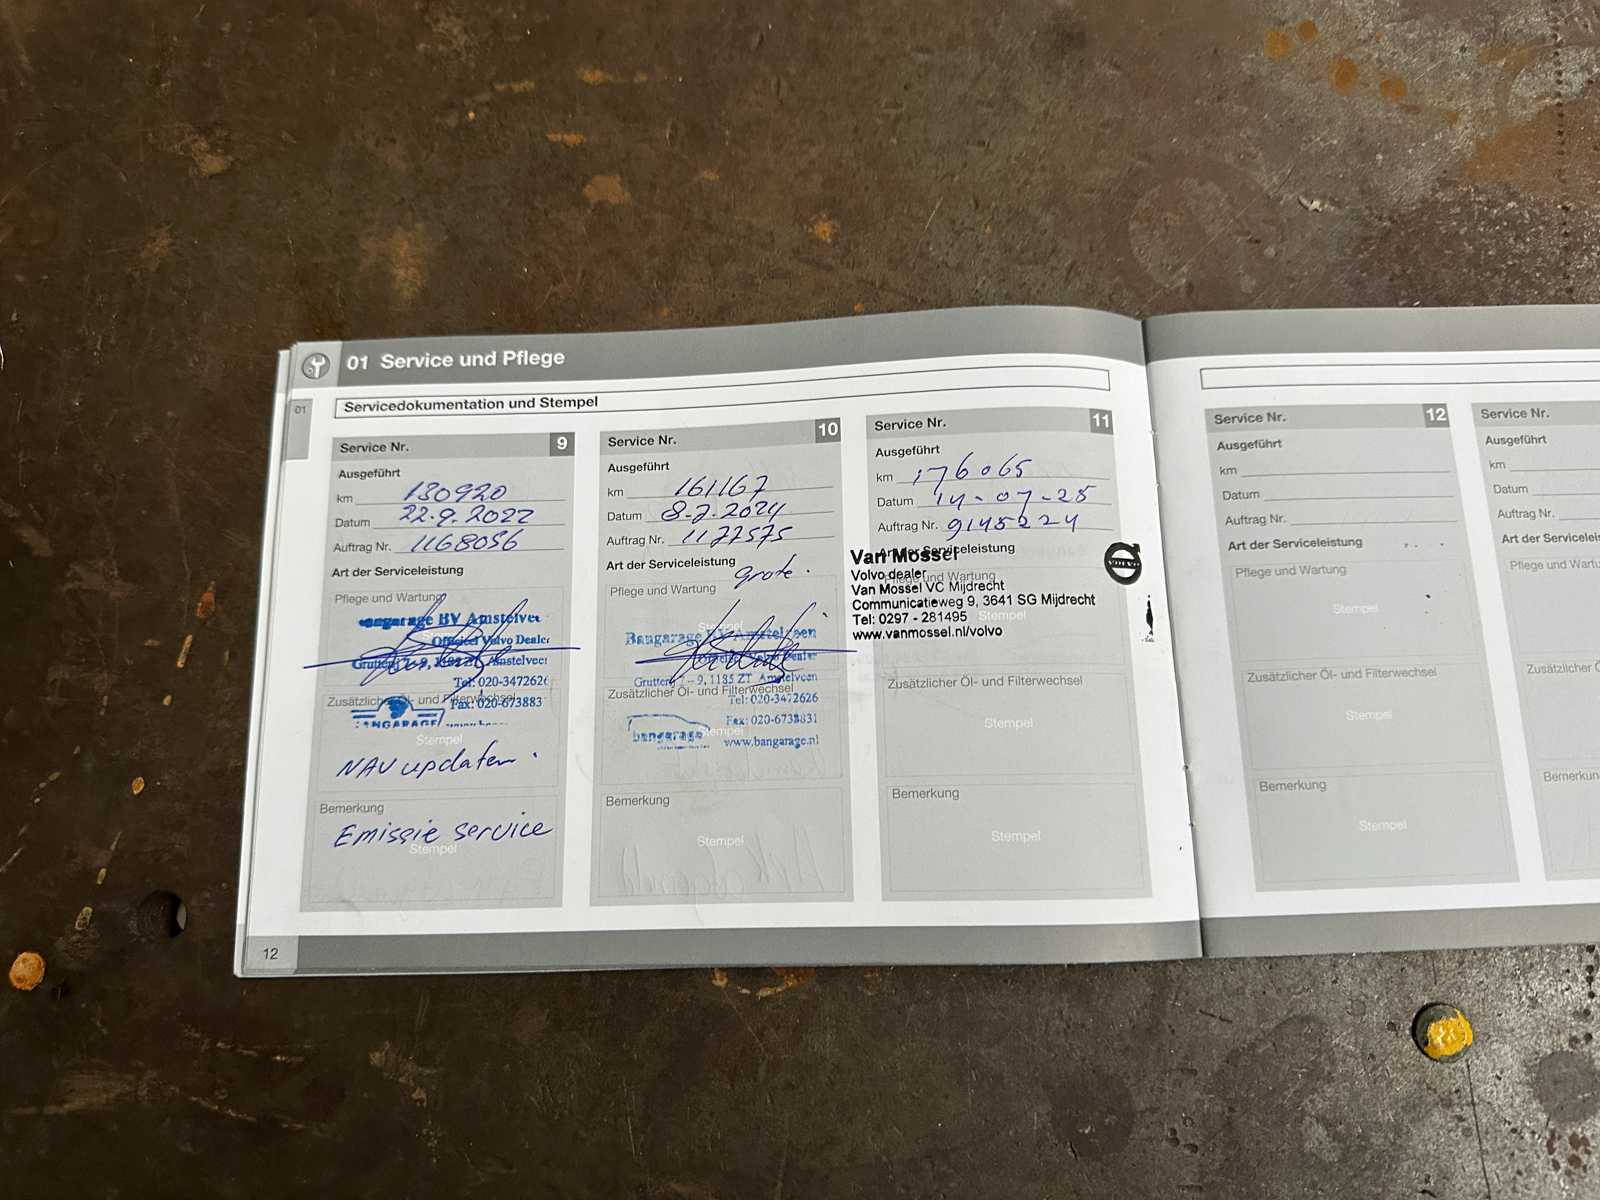 01 Service und Pflege
01
Servicedokumentation und Stempel
Service Nr. 9
Ausgeführt
km 130920
Datum 22-9-2022
Auftrag Nr. 1168056
Art der Serviceleistung
Pflege und Wartung
Bangarage BV Amstelveen
Officieel Volvo Dealer
Grutterij 7-9, 1185 ZT Amstelveen
Tel: 020-3472626
Zusätzlicher Öl- und Filterwechsel
Fax: 020-673883
BANGARAGE
Stempel
NAV updaten.
Bemerkung
Emissie service
Stempel
12
Service Nr. 10
Ausgeführt
km 161167
Datum 8-7-2024
Auftrag Nr. 1177575
Art der Serviceleistung
grote.
Pflege und Wartung
Stempel
Bangarage BV Amstelveen
Officieel Volvo Dealer
Grutterij 7-9, 1185 ZT Amstelveen
Zusätzlicher Öl- und Filterwechsel
Tel: 020-3472626
Fax: 020-6738831
Stempel
bangarage
www.bangarage.nl
Bemerkung
Stempel
Service Nr. 11
Ausgeführt
km 176065
Datum 14-07-25
Auftrag Nr. 9145224
Art der Serviceleistung
Van Mossel
Pflege und Wartung
Volvo dealer
Van Mossel VC Mijdrecht
Communicatieweg 9, 3641 SG Mijdrecht
Stempel
Tel: 0297 - 281495
www.vanmossel.nl/volvo
VOLVO
Zusätzlicher Öl- und Filterwechsel
Stempel
Bemerkung
Stempel
Service Nr. 12
Ausgeführt
km
Datum
Auftrag Nr.
Art der Serviceleistung
Pflege und Wartung
Stempel
Zusätzlicher Öl- und Filterwechsel
Stempel
Bemerkung
Stempel
Service Nr.
Ausgeführt
km
Datum
Auftrag Nr.
Art der Servicelei
Pflege und Wart
Zusätzlicher Ö
Bemerkun